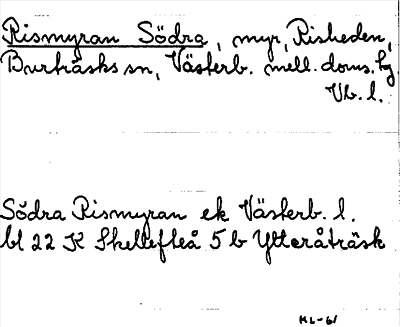 Rismyran Södra, myr, Risheden,
Burträsks sn, Västerb. mell. doms. hg
Vb. l.
Södra Rismyran ek Västerb. l.
bl 22 K Skellefteå 5 b Ytteråträsk
HL-61